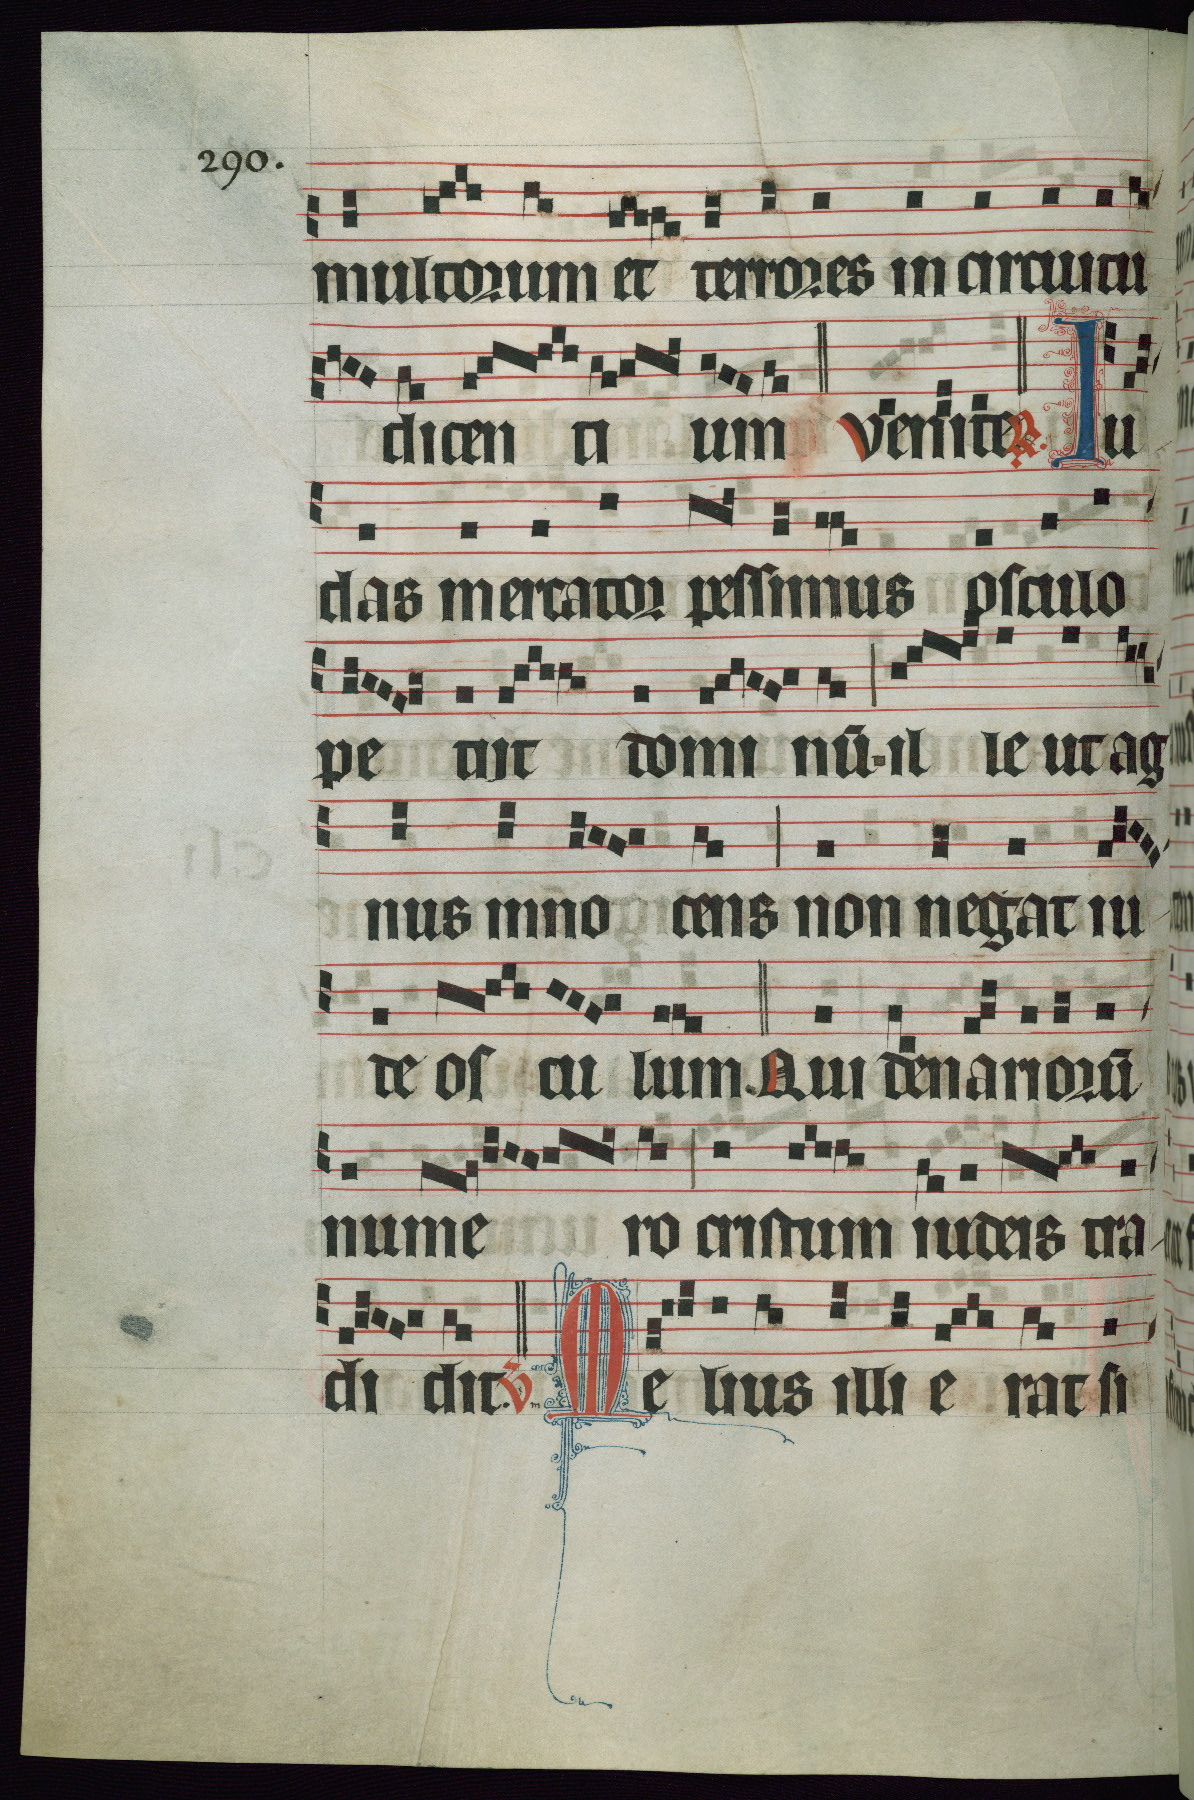 290.
multorum et terrores in circuitu
dicen ti um Venite R. Iu
das mercator pessimus osculo
pe tijt domi nū. il le ut ag
nus inno cens non negat iu
te os cu lum. Qui denariorū
nume ro cristum iudeis tra
di dit. V Me lius illi e rat si